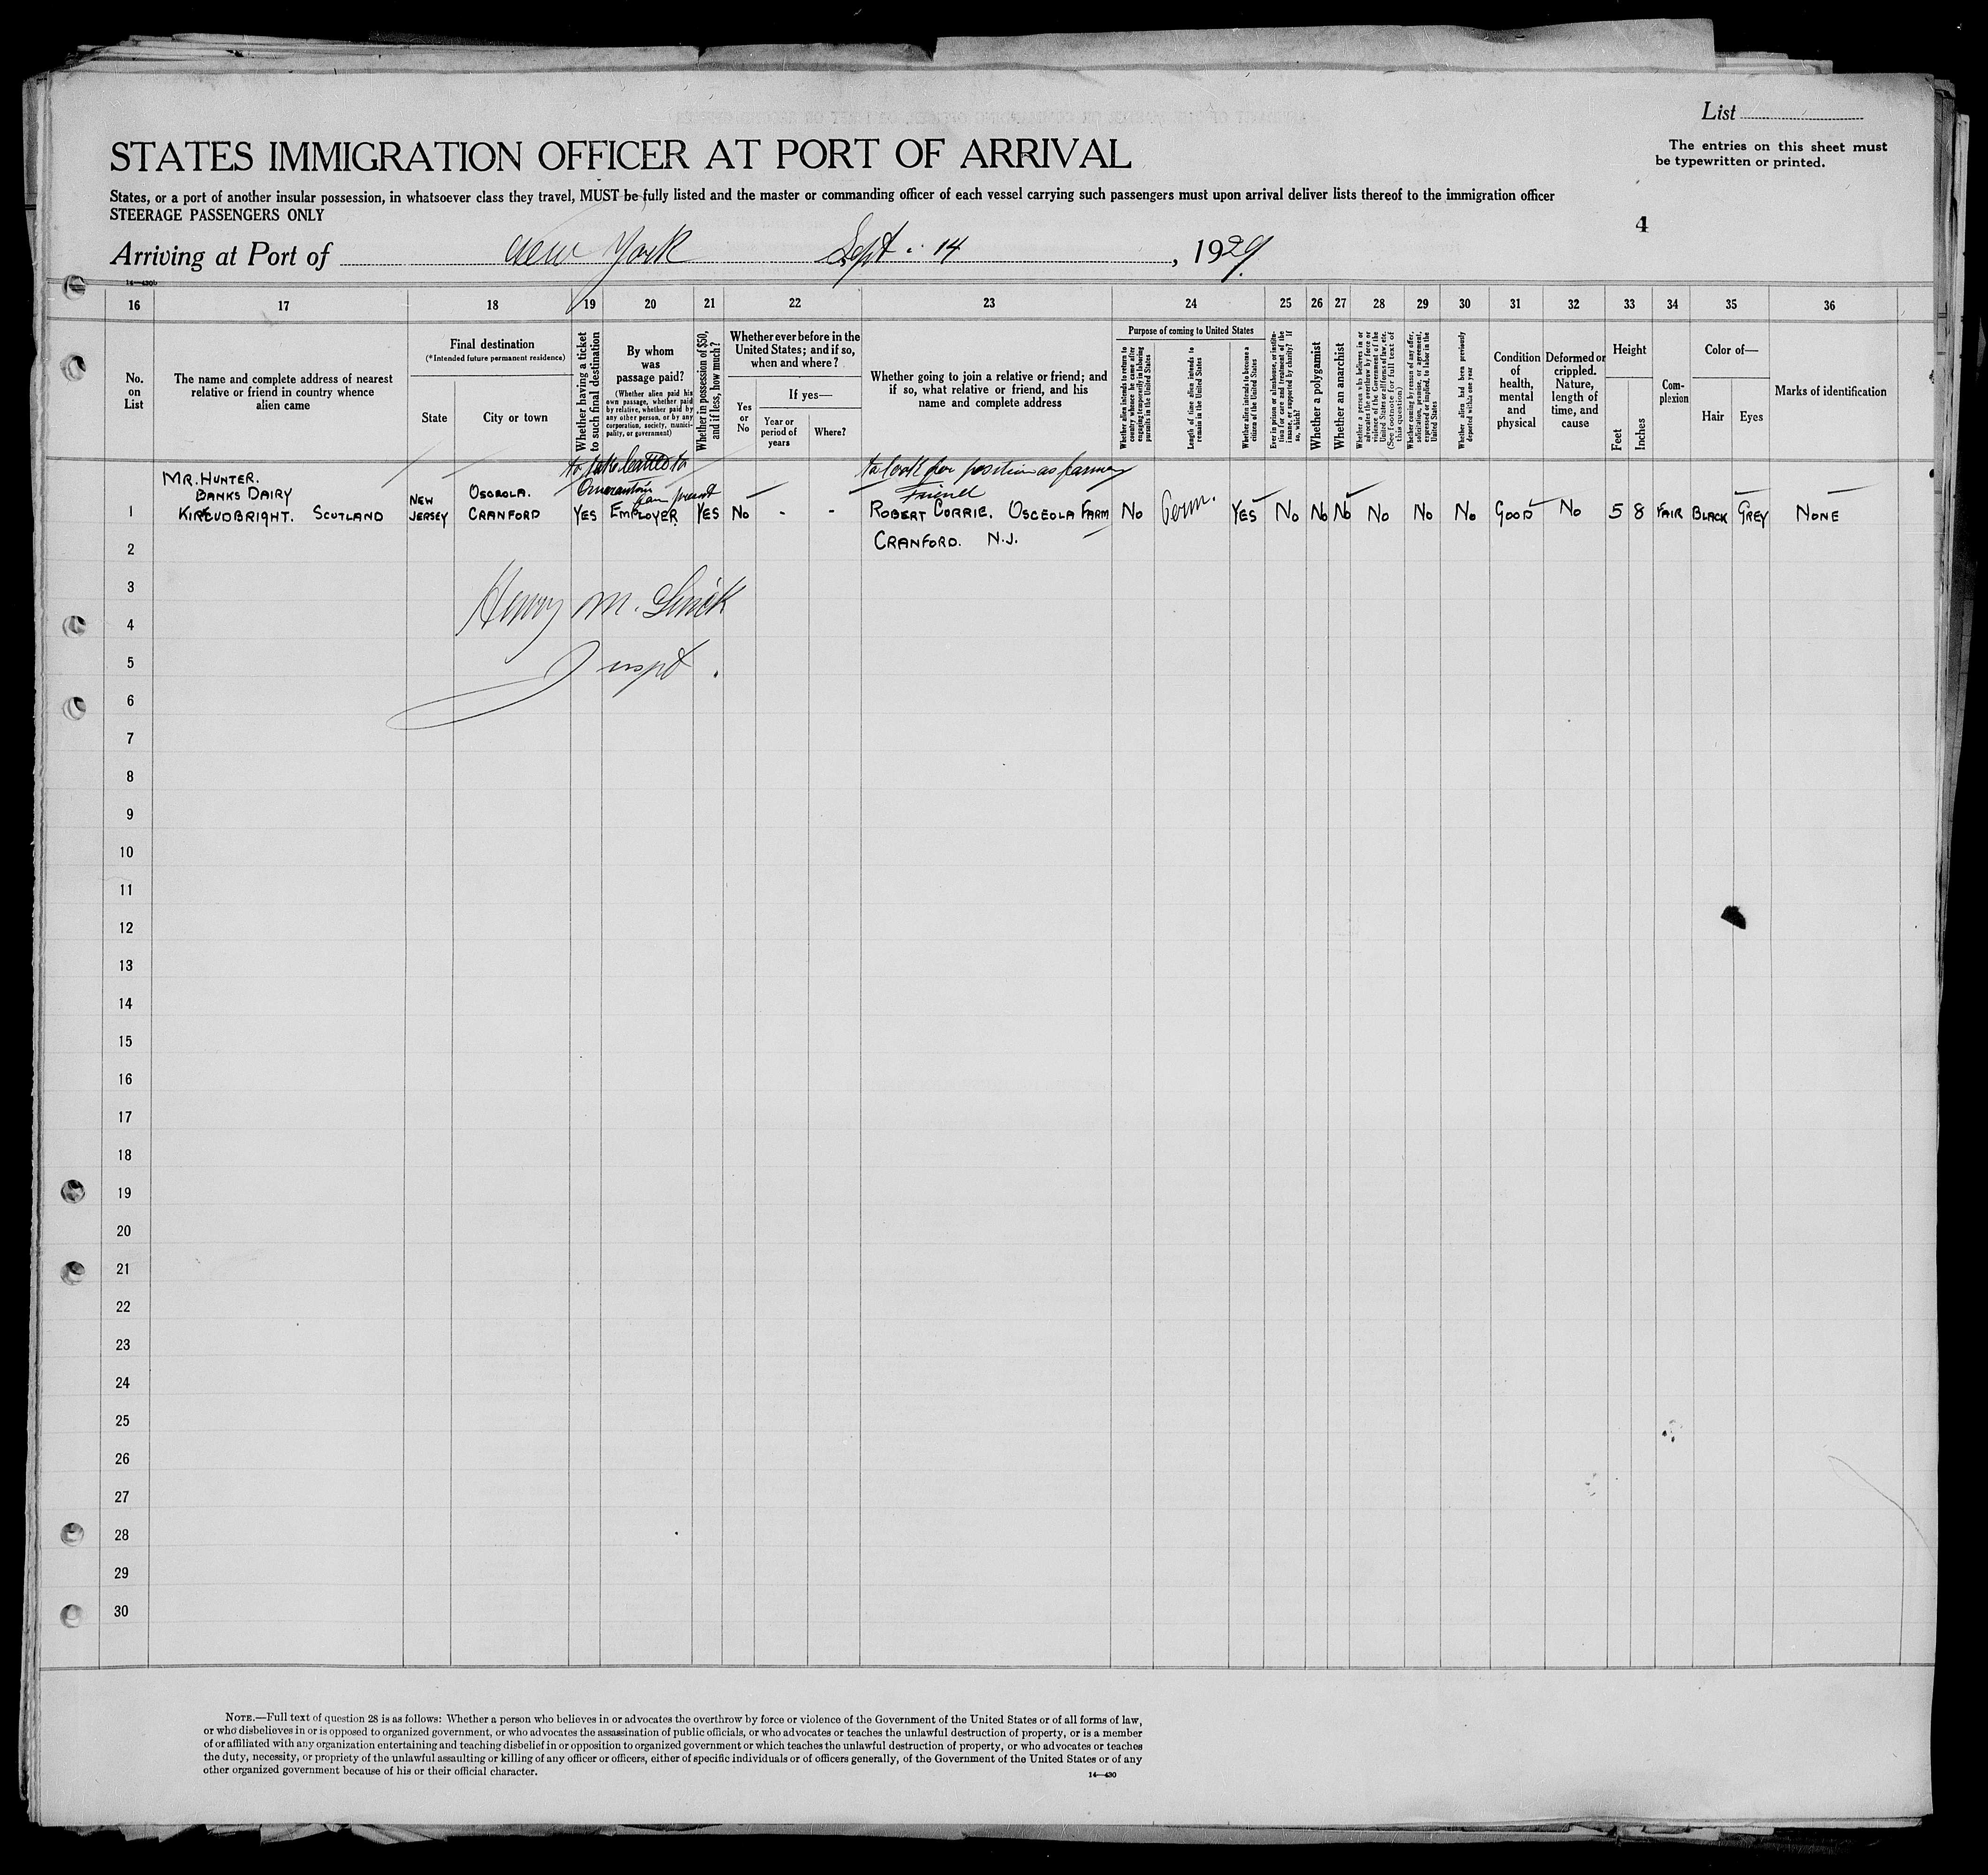 List
The entries on this sheet must
be typewritten or printed.
STATES IMMIGRATION OFFICER AT PORT OF ARRIVAL
States, or a port of another insular possession, in whatsoever class they travel, MUST be fully listed and the master or commanding officer of each vessel carrying such passengers must upon arrival deliver lists thereof to the immigration officer
STEERAGE PASSENGERS ONLY
4
Arriving at Port of New York Sept. 14, 1929
14—430b
16 17 18 19 20 21 22 23 24 25 26 27 28 29 30 31 32 33 34 35 36
No.
on
List
The name and complete address of nearest
relative or friend in country whence
alien came
Final destination
(*Intended future permanent residence)
State
City or town
Whether having a ticket
to such final destination
By whom
was
passage paid?
(Whether alien paid his
own passage, whether paid
by relative, whether paid by
any other person, or by any
corporation, society, munici-
pality, or government)
Whether in possession of $50,
and if less, how much?
Whether ever before in the
United States; and if so,
when and where?
Yes
or
No
If yes—
Year or
period of
years
Where?
Whether going to join a relative or friend; and
if so, what relative or friend, and his
name and complete address
Purpose of coming to United States
Whether alien intends to return to
country whence he came after
engaging temporarily in laboring
pursuits in the United States
Length of time alien intends to
remain in the United States
Whether alien intends to become a
citizen of the United States
Ever in prison or almshouse, or institu-
tion for care and treatment of the
insane, or supported by charity? If
so, which?
Whether a polygamist
Whether an anarchist
Whether a person who believes in or
advocates the overthrow by force or
violence of the Government of the
United States or all forms of law, etc.
(See footnote for full text of
this question)
Whether coming by reason of any offer,
solicitation, promise, or agreement,
expressed or implied, to labor in the
United States
Whether alien had been previously
deported within one year
Condition
of
health,
mental
and
physical
Deformed or
crippled.
Nature,
length of
time, and
cause
Height
Feet
Inches
Com-
plexion
Color of—
Hair
Eyes
Marks of identification
to take cattle to
Quarantine
from present
to look for position as farmer
Friend
MR. HUNTER.
BANKS DAIRY
KIRCUDBRIGHT. SCOTLAND
NEW
JERSEY
OSOROLA.
CRANFORD
1 YES EMPLOYER YES NO - - ROBERT CORRIE. OSCEOLA FARM NO Perm. YES NO NO NO NO NO NO GOOD NO 5 8 FAIR BLACK GREY NONE
2 CRANFORD. N.J.
3
Henry M.
4
5
Inspt.
6
7
8
9
10
11
12
13
14
15
16
17
18
19
20
21
22
23
24
25
26
27
28
29
30
NOTE.—Full text of question 28 is as follows: Whether a person who believes in or advocates the overthrow by force or violence of the Government of the United States or of all forms of law,
or who disbelieves in or is opposed to organized government, or who advocates the assassination of public officials, or who advocates or teaches the unlawful destruction of property, or is a member
of or affiliated with any organization entertaining and teaching disbelief in or opposition to organized government or which teaches the unlawful destruction of property, or who advocates or teaches
the duty, necessity, or propriety of the unlawful assaulting or killing of any officer or officers, either of specific individuals or of officers generally, of the Government of the United States or of any
other organized government because of his or their official character.
14—430